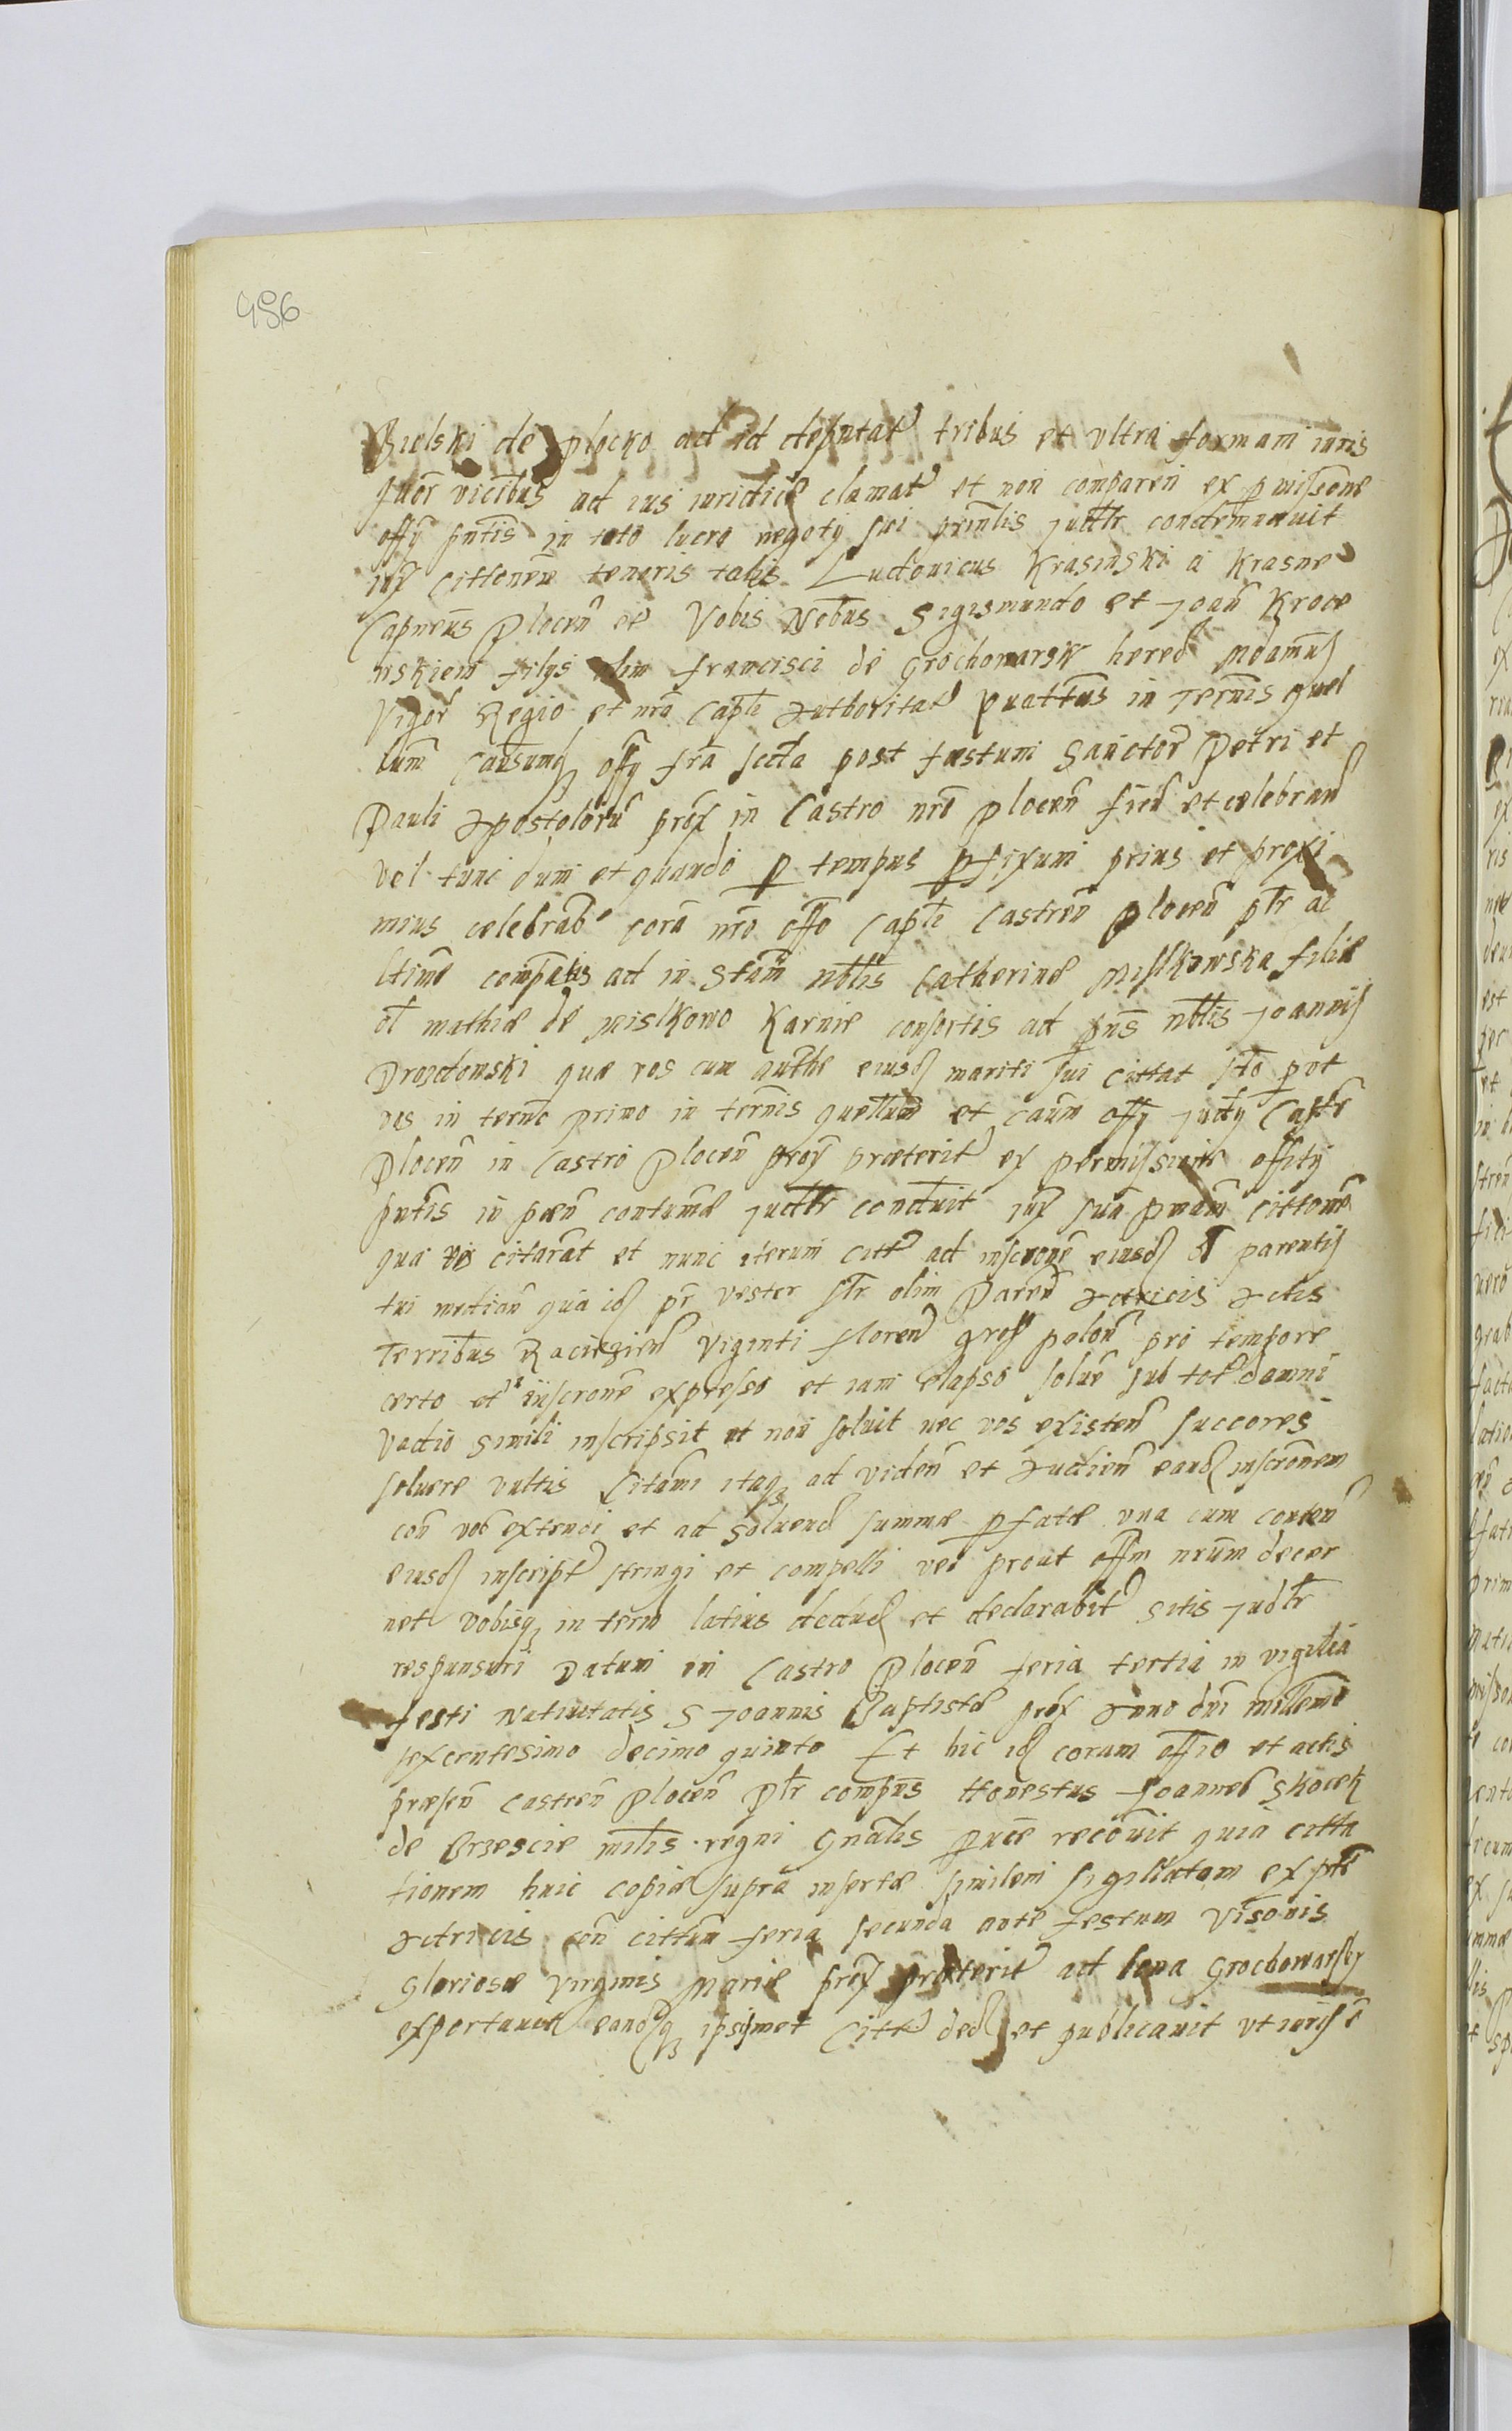 496
Bielski de Plocko ad id deputat tribus et vltra formam iuris
quor vicibus ad ius iuridice clamat et non comparen ex pmissione
offy pntis in toto lucro negoty sui prinlis judtr condemnavit
iux cittonem tenoris talis Ludouicus Krasinski a Krasne
Capneus Plocen et Vobis Nobus Sigismundo et Joan Kroce
nskiem filys olim Francisci de Grochowarsk hered Mdamus
Vigor Regio et nra Capli Authoritat quattus in Termis quel
lum Causumq offy fria secta post festum Sanctor Petri et
Pauli Apostoloru prox in Castro nro Plocen fien et celebran
vel tunc dum et quando p tempus pfixum prius et proxi
mius celebrab cora nro offo Capli Castren Plocen ptr ac
ltime compatis ad instam nblis Catherinae Misskowska filiae
ol Mathiae de Misskowo Karniie consortis ad pns nblis Joannis
Drozdowski quae vos cum authe eiusd mariti sui cittat sto pot
vos in termc primo in termis quellum et caum offy judy Capte
Plocen in Castro Plocen prox praeterit ex permissione offity
pntis in paen contumae judtr conduit iux sua pmam cittone
qua vos citarat et nunc iterum citt ad inscrone eiusd ol parentis
tui median qua id pr vester str olim Paren Actricis Actis
Terribus Raciezien Viginti floren gros polon pro tempore
certo et inscrone expresso et iam elapso solue sub tot damni
vadio simili inscripsit et non soluit nec vos existen succores
soluere vultis Citami itaq ad viden et Audien eand inscronem
con vob extendi et ad soluend summae pfatae vna cum conten
eiusd inscript stringi et compelli vel prout offm nrum decer
net vobisq in term latius deduc et declarabit sitis judtr
responsuri Datum in Castro Plocen feria tertia in vigilia
festi Natiuitatis S Joannis Baptistae prox Anno dni millemo
sexcentesimo decimo quinto Et hic id coram offio et actis
praesen castren Plocen Ptr compns Honestus Joannes Skocek
de Brzescie mlis regni Gnalis pnce recouit quia citta
tionem huic copiae supra insertae similem sigillatam ex pte
Actricis con cittm feria secunda ante festum Visonis
Gloriosae Virginis Mariae prox praeterit ad bona Grochowarsky
exportauit eandq ipsismet Citt ded et publicauit vt iuris e